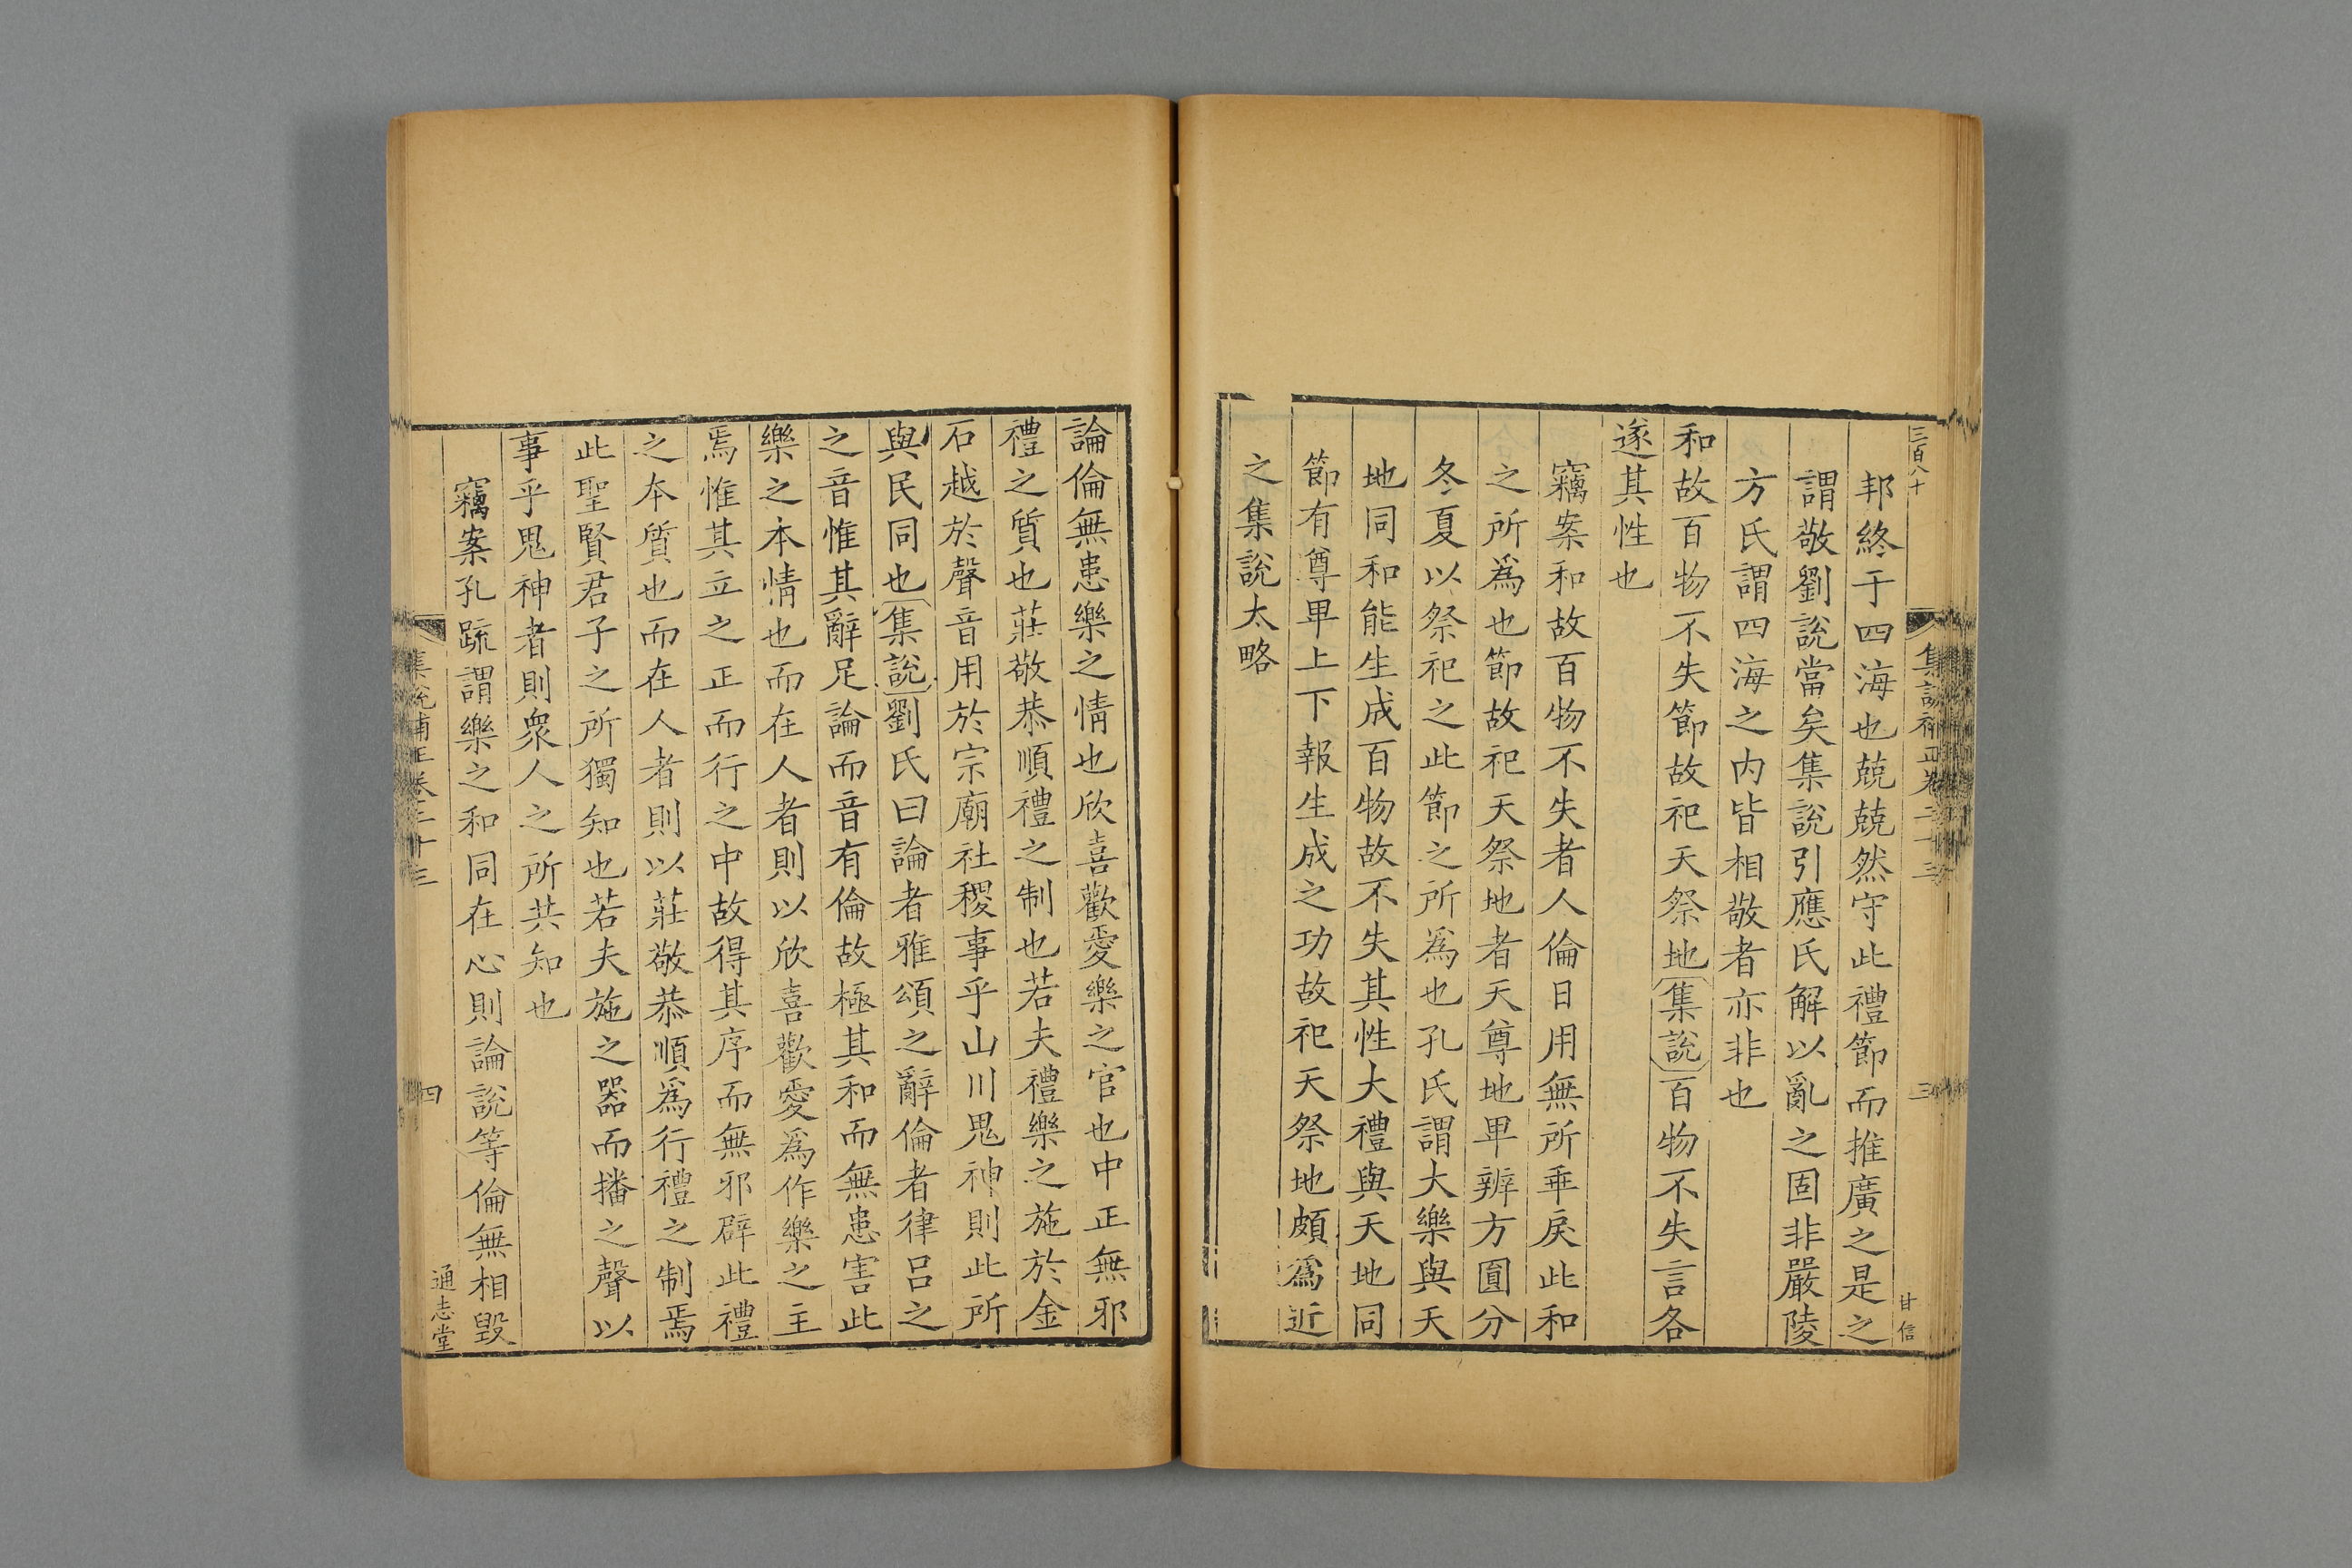 三百八十
集說補正卷二十三
三
甘信
邦終于四海也兢兢然守此禮節而推廣之是之
謂敬劉說當矣集說引應氏解以亂之固非嚴陵
方氏謂四海之内皆相敬者亦非也
和故百物不失節故祀天祭地集說百物不失言各
遂其性也
竊案和故百物不失者人倫日用無所乖戾此和
之所爲也節故祀天祭地者天尊地卑辨方圓分
冬夏以祭祀之此節之所爲也孔氏謂大樂與天
地同和能生成百物故不失其性大禮與天地同
節有尊卑上下報生成之功故祀天祭地頗爲近
之集說太略
論倫無患樂之情也欣喜歡愛樂之官也中正無邪
禮之質也莊敬恭順禮之制也若夫禮樂之施於金
石越於聲音用於宗廟社稷事乎山川鬼神則此所
與民同也集說劉氏曰論者雅頌之辭倫者律呂之
之音惟其辭足論而音有倫故極其和而無患害此
樂之本情也而在人者則以欣喜歡愛爲作樂之主
焉惟其立之正而行之中故得其序而無邪辟此禮
之本質也而在人者則以莊敬恭順爲行禮之制焉
此聖賢君子之所獨知也若夫施之器而播之聲以
事乎鬼神者則衆人之所共知也
竊案孔疏謂樂之和同在心則論說等倫無相毀
集說補正卷二十三
四
通志堂